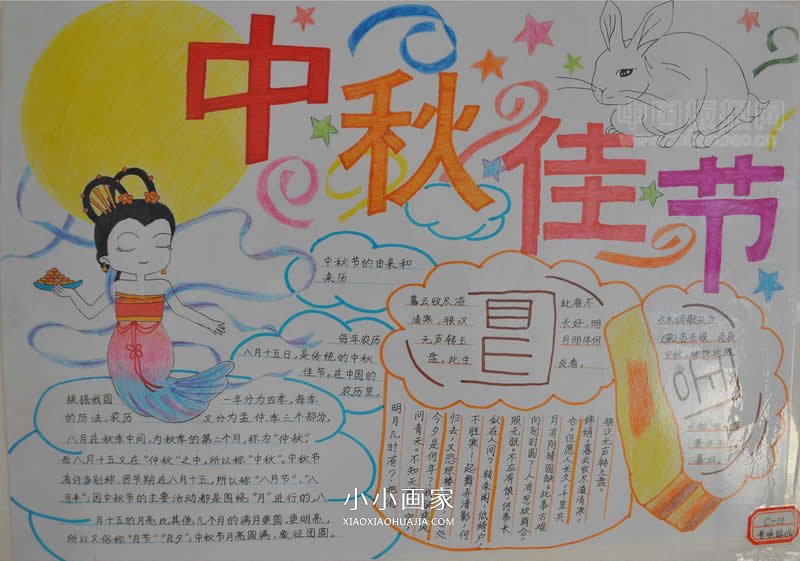 中秋佳节
中秋节的由来和
来历
每年农历
八月十五日,是传统的中秋
佳节。在中国的
农历里,
根据我国
一年分为四季,每季
的历法,农历
又分为孟仲季三个部分,
八月在秋季中间,为秋季的第二个月,称为“仲秋”
而八月十五又在“仲秋”之中,所以称“中秋”。中秋节
有许多别称:因节期在八月十五,所以称“八月节”、“八
月半”;因中秋节的主要活动都是围绕“月”进行的,八
月十五的月亮比其他几个月的满月更圆,更明亮,
所以又俗称“月节”“月夕”,中秋节月亮圆满,象征团圆。
暮云收尽溢
清寒,银汉
无声转玉
盘,此生
此夜不
长好,明
月明年何
处看。
明月几时有?把
问青天。不知天
今夕是何年?
归去,又恐
不胜寒!起舞弄清影,何
似在人间?转朱阁,低绮户,
照无眠。不应有恨,何事长
向别时圆?人有悲欢离合,
月有阴晴圆缺,此事古难
全。但愿人长久,千里共
婵娟。暮云收尽溢清寒,
银汉无声转玉盘。
小小画家
XIAOXIAOHUAJIA.COM